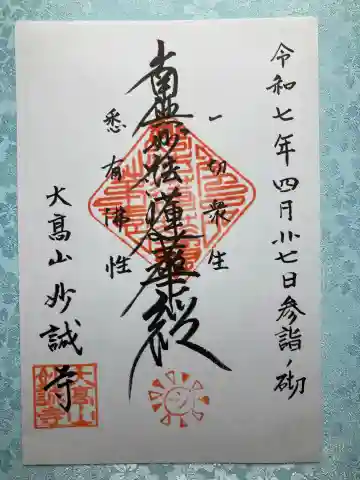 令和七年四月廿七日参詣ノ砌
一切衆生
南無妙法蓮華経
悉有佛性
大高山妙誠寺
大高山
妙誠寺